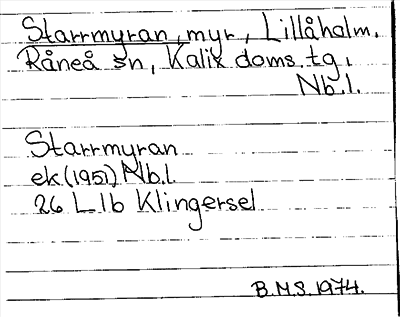 Starrmyran, myr, Lillåholm.
Råneå sn, Kalix doms.tg.
Nb.l.
Starrmyran
ek(1951) Nb.l
26 L1b Klingersel
B.M.S. 1974.